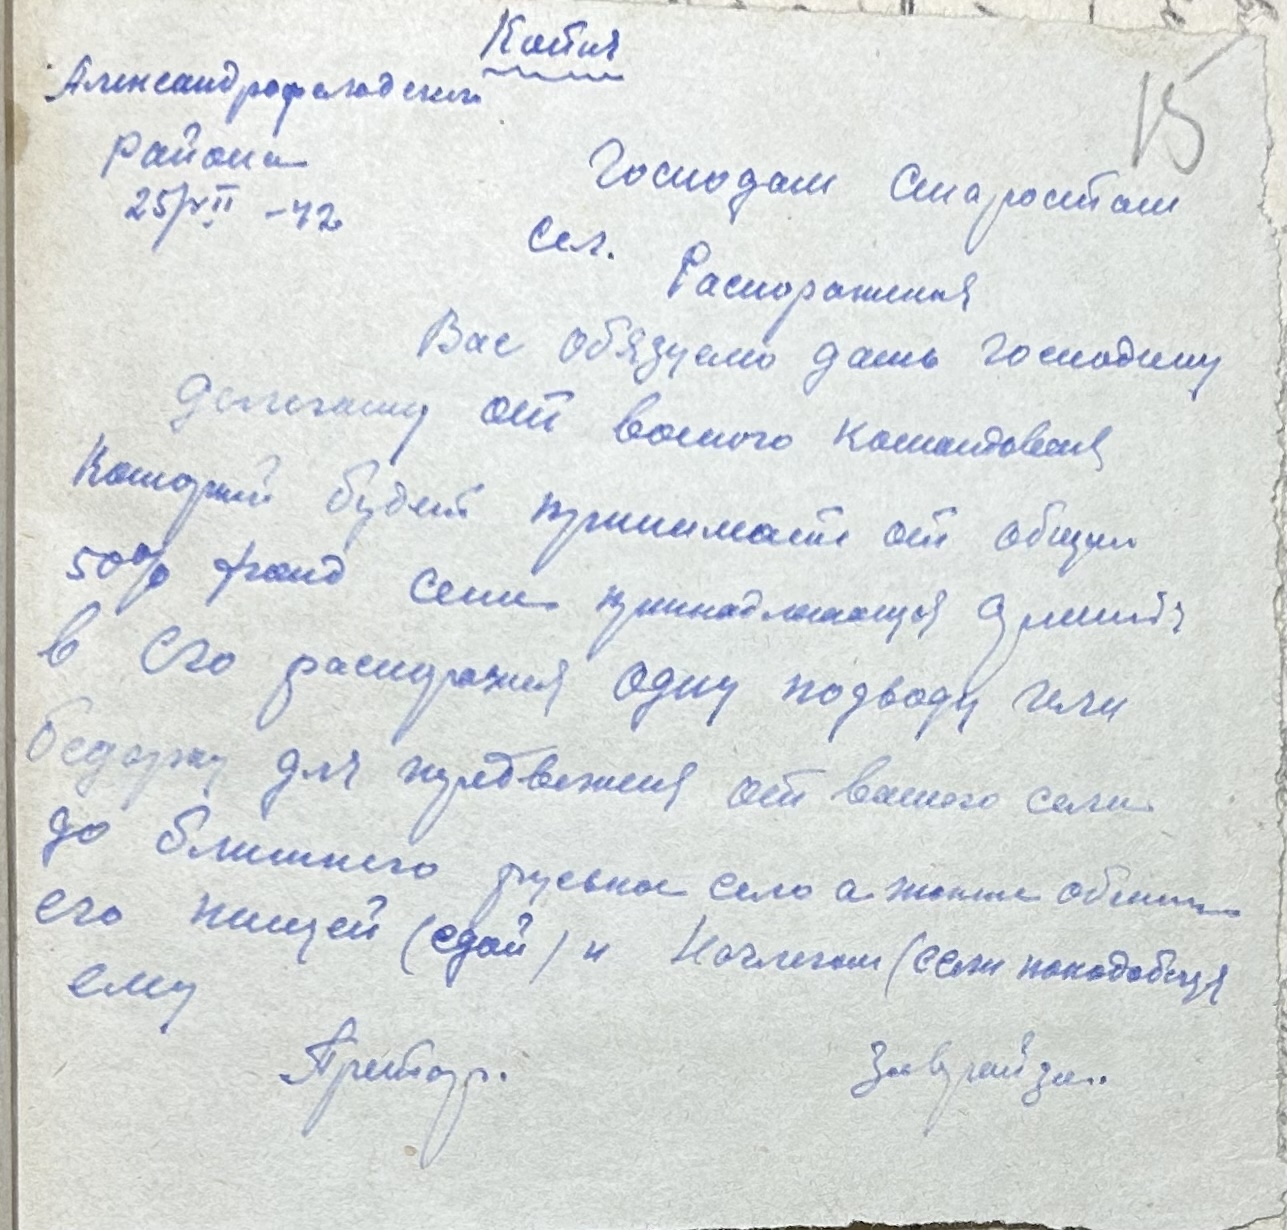 Копия
15
Александрофельдский
района
25/VII -42
Господам Старостам
сел.
Распоряжения
Вас обязуемо дать господину
делегату от военого командования
Которий будет принимать от общин
50% фонд сена принадлежащия Армии
в его распоряжия одну подводу или
бедарку для передвежения от вашего села
до ближнего села а также
его пищей (едой) и Ночлегом (если понадобиця
ему
Претор. Заврайзо.